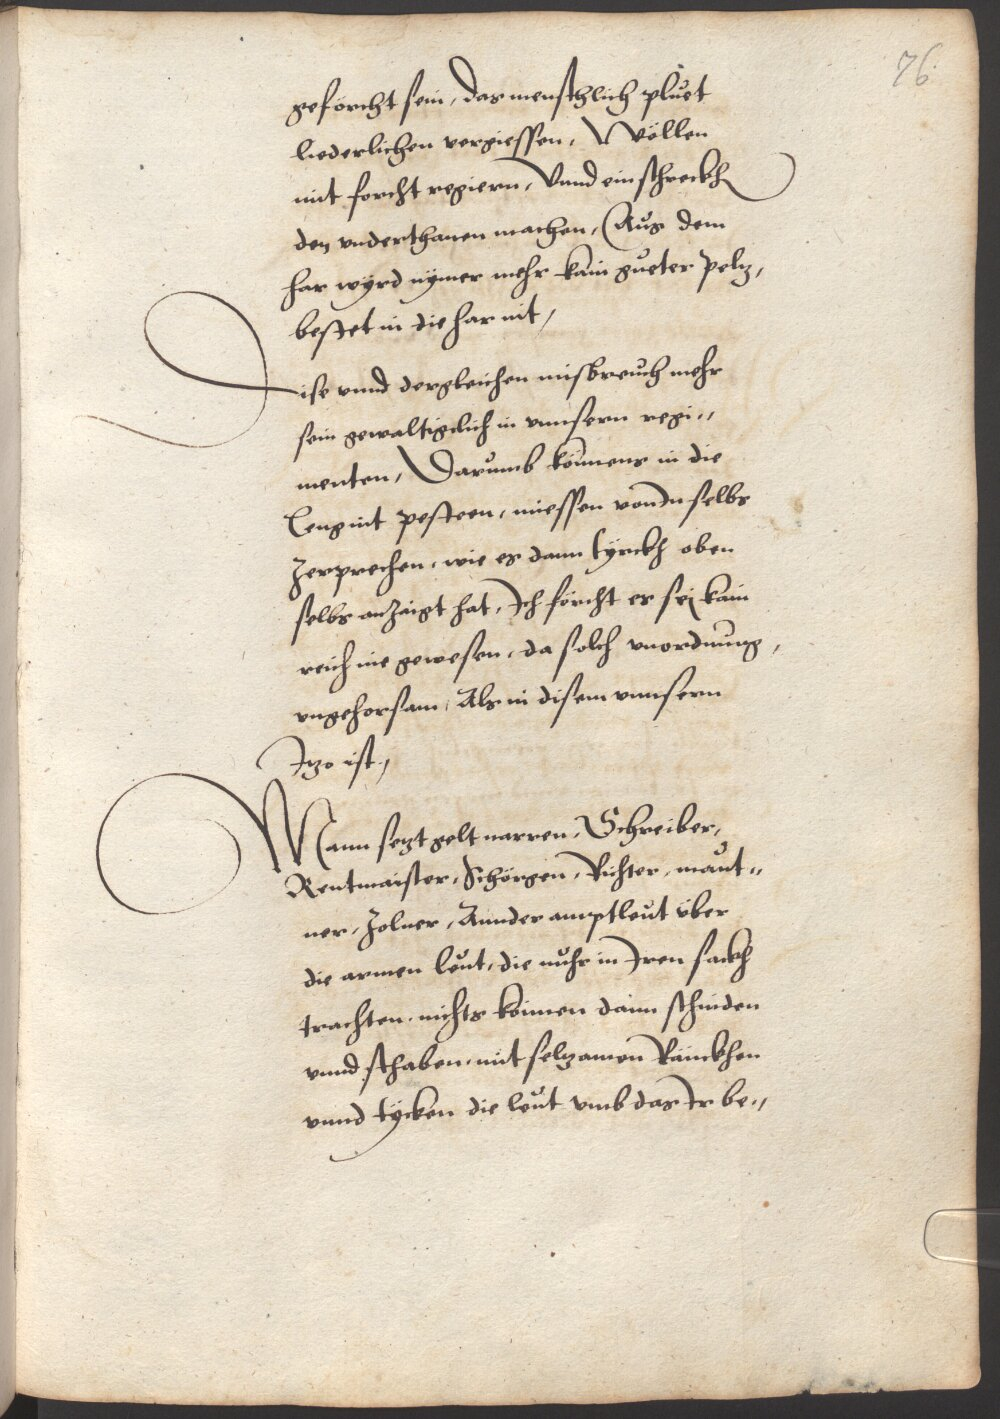 76
geförcht sein, das menschlich pluet
liederlichen vergiessen, Wöllen
mit forcht regiern, Vnnd ein schreckh
den vnderthanen machen, Aus dem
har wyrd nymer mehr kain gueter peltz,
bestet in die har nit,
Dise vnnd dergleichen misbreuch mehr
sein gewaltigclich in vnnsern regi-,,
menten, Darumb könnens in die
Leng nit pesteen, miessen von In selbs
Zerprechen, wie es dann Tyrckh oben
selbs anzaigt hat, Ich förcht es sej kain
reich nie gewesen, da solch vnordnung,
vngehorsam, Als in disem vnnsern
Itzo ist,
Mann setzt gelt narren, Schreiber,
Rentmaister, Schörgen, Richter, maut-,,
ner, Zolner, Annder amptleut über
die armen leut, die nuhr in Iren sackh
trachten, nichts können dann schinden
vnnd schaben, mit seltzamen Ränckhen
vnnd tycken die leut vmb das Ir be-,,